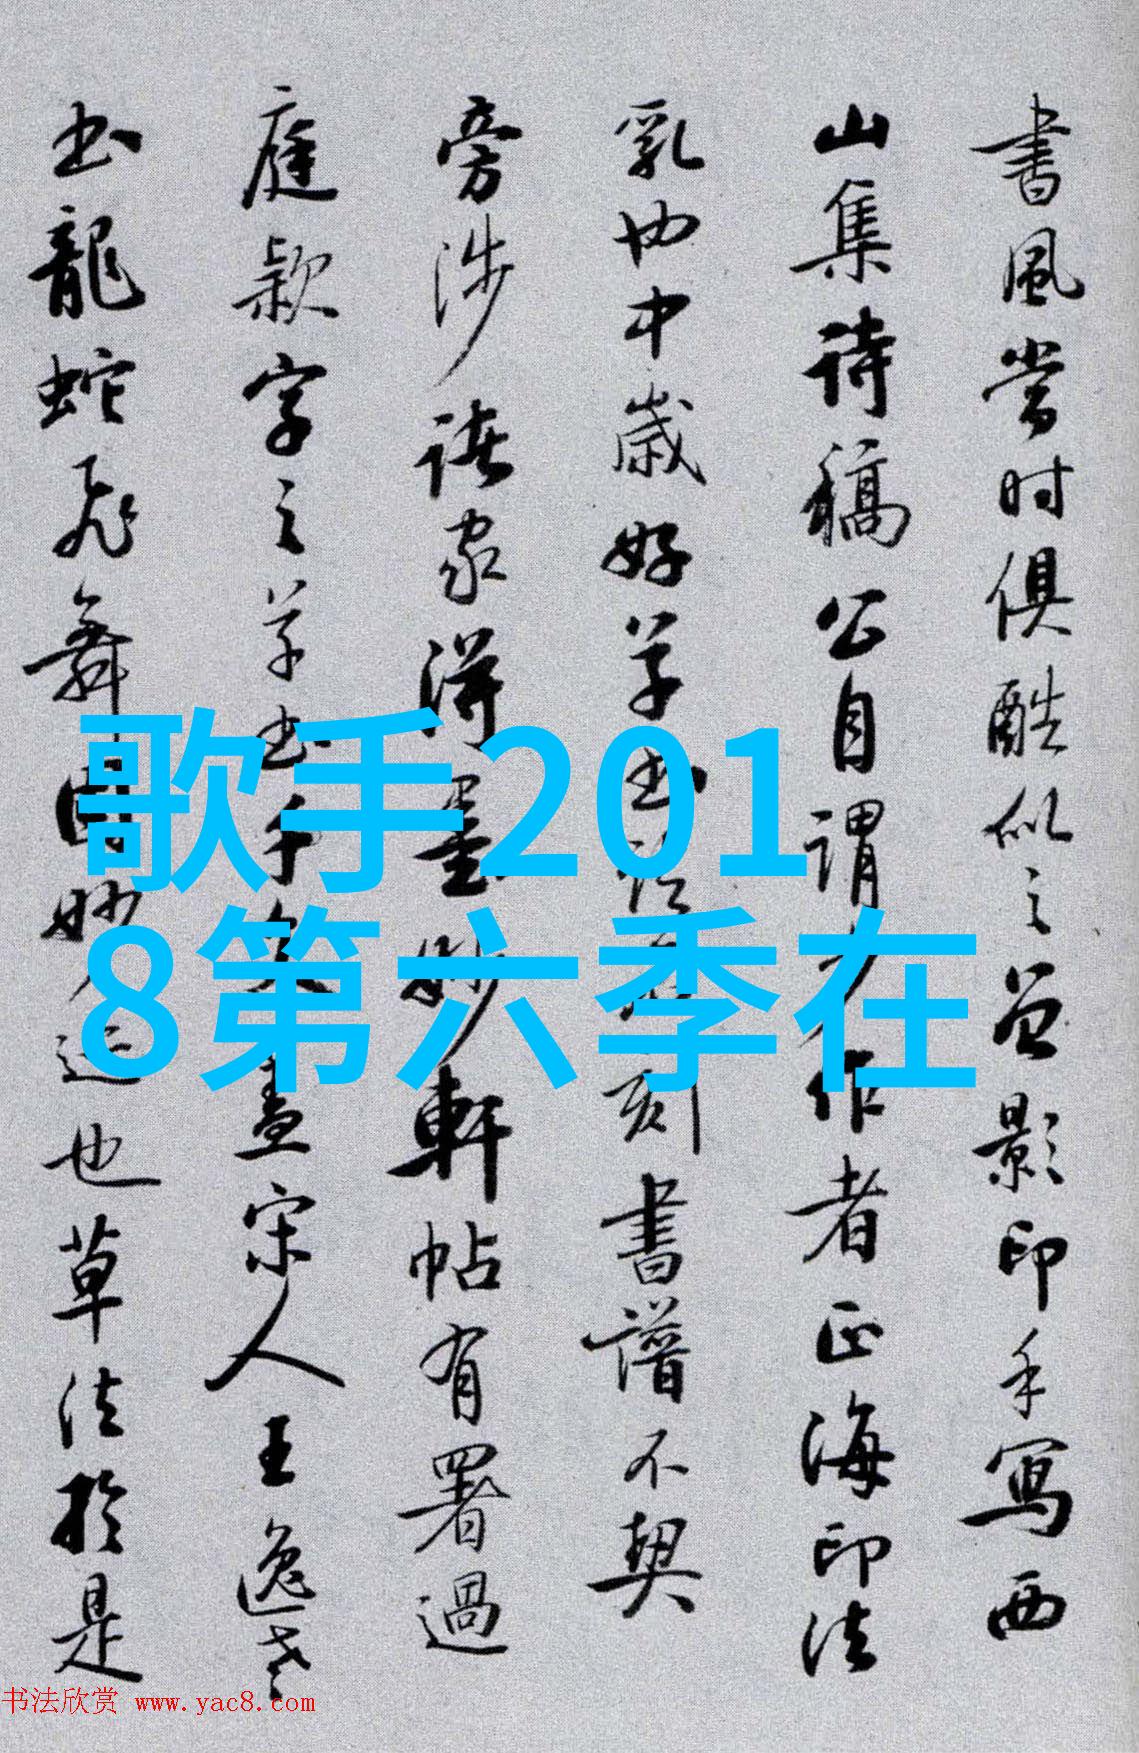 書風當时俱酷似之曾影印手寫西
山集詩稿公自謂少作者正海印法
乳也中歲好草书法刻書譜不契
旁涉諸家得墨妙軒帖有署過
庭款字之草书千文盖宋人王逸老
书龍蛇飛舞曲妙也草法於是
歌手201
8第六季在
书法欣赏 www.yac8.com